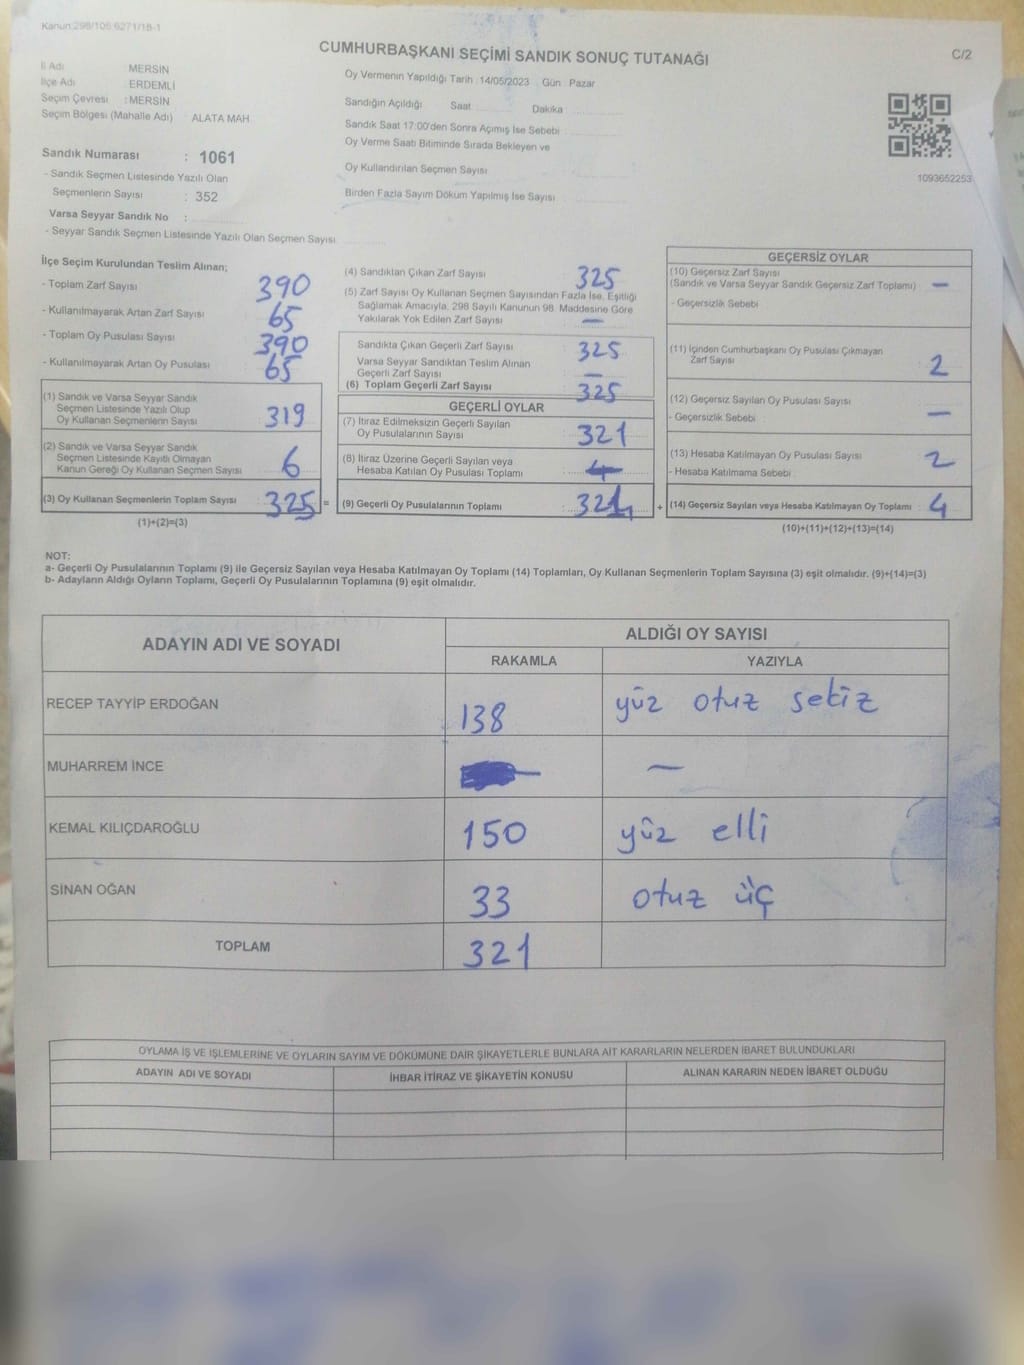 Kanun:298/106 6271/18-1
CUMHURBAŞKANI SEÇİMİ SANDIK SONUÇ TUTANAĞI
C/2
İl Adı MERSİN
İlçe Adı ERDEMLİ
Seçim Çevresi : MERSİN
Seçim Bölgesi (Mahalle Adı) : ALATA MAH.
Oy Vermenin Yapıldığı Tarih : 14/05/2023 Gün : Pazar
Sandığın Açıldığı Saat Dakika
Sandık Saat 17:00'den Sonra Açımış İse Sebebi
Oy Verme Saati Bitiminde Sırada Bekleyen ve
Oy Kullandırılan Seçmen Sayısı
Birden Fazla Sayım Döküm Yapılmış İse Sayısı
1093652253
Sandık Numarası : 1061
- Sandık Seçmen Listesinde Yazılı Olan
Seçmenlerin Sayısı : 352
Varsa Seyyar Sandık No :
- Seyyar Sandık Seçmen Listesinde Yazılı Olan Seçmen Sayısı
İlçe Seçim Kurulundan Teslim Alınan;
- Toplam Zarf Sayısı 390
- Kullanılmayarak Artan Zarf Sayısı 65
- Toplam Oy Pusulası Sayısı 390
- Kullanılmayarak Artan Oy Pusulası 65
(1) Sandık ve Varsa Seyyar Sandık
Seçmen Listesinde Yazılı Olup
Oy Kullanan Seçmenlerin Sayısı 319
(2) Sandık ve Varsa Seyyar Sandık
Seçmen Listesinde Kayıtlı Olmayan
Kanun Gereği Oy Kullanan Seçmen Sayısı 6
(3) Oy Kullanan Seçmenlerin Toplam Sayısı 325 =
(1)+(2)=(3)
(4) Sandıktan Çıkan Zarf Sayısı 325
(5) Zarf Sayısı Oy Kullanan Seçmen Sayısından Fazla İse, Eşitliği
Sağlamak Amacıyla, 298 Sayılı Kanunun 98. Maddesine Göre
Yakılarak Yok Edilen Zarf Sayısı —
Sandıkta Çıkan Geçerli Zarf Sayısı 325
Varsa Seyyar Sandıktan Teslim Alınan
Geçerli Zarf Sayısı —
(6) Toplam Geçerli Zarf Sayısı 325
GEÇERLİ OYLAR
(7) İtiraz Edilmeksizin Geçerli Sayılan
Oy Pusulalarının Sayısı 321
(8) İtiraz Üzerine Geçerli Sayılan veya
Hesaba Katılan Oy Pusulası Toplamı
(9) Geçerli Oy Pusulalarının Toplamı 321 +
GEÇERSİZ OYLAR
(10) Geçersiz Zarf Sayısı
(Sandık ve Varsa Seyyar Sandık Geçersiz Zarf Toplamı) —
- Geçersizlik Sebebi
(11) İçinden Cumhurbaşkanı Oy Pusulası Çıkmayan
Zarf Sayısı 2
(12) Geçersiz Sayılan Oy Pusulası Sayısı —
- Geçersizlik Sebebi
(13) Hesaba Katılmayan Oy Pusulası Sayısı 2
- Hesaba Katılmama Sebebi
(14) Geçersiz Sayılan veya Hesaba Katılmayan Oy Toplamı 4
(10)+(11)+(12)+(13)=(14)
NOT:
a- Geçerli Oy Pusulalarının Toplamı (9) ile Geçersiz Sayılan veya Hesaba Katılmayan Oy Toplamı (14) Toplamları, Oy Kullanan Seçmenlerin Toplam Sayısına (3) eşit olmalıdır. (9)+(14)=(3)
b- Adayların Aldığı Oyların Toplamı, Geçerli Oy Pusulalarının Toplamına (9) eşit olmalıdır.
ADAYIN ADI VE SOYADI
ALDIĞI OY SAYISI
RAKAMLA YAZIYLA
RECEP TAYYİP ERDOĞAN 138 yüz otuz sekiz
MUHARREM İNCE — —
KEMAL KILIÇDAROĞLU 150 yüz elli
SİNAN OĞAN 33 otuz üç
TOPLAM 321
OYLAMA İŞ VE İŞLEMLERİNE VE OYLARIN SAYIM VE DÖKÜMÜNE DAİR ŞİKAYETLERLE BUNLARA AİT KARARLARIN NELERDEN İBARET BULUNDUKLARI
ADAYIN ADI VE SOYADI İHBAR İTİRAZ VE ŞİKAYETİN KONUSU ALINAN KARARIN NEDEN İBARET OLDUĞU